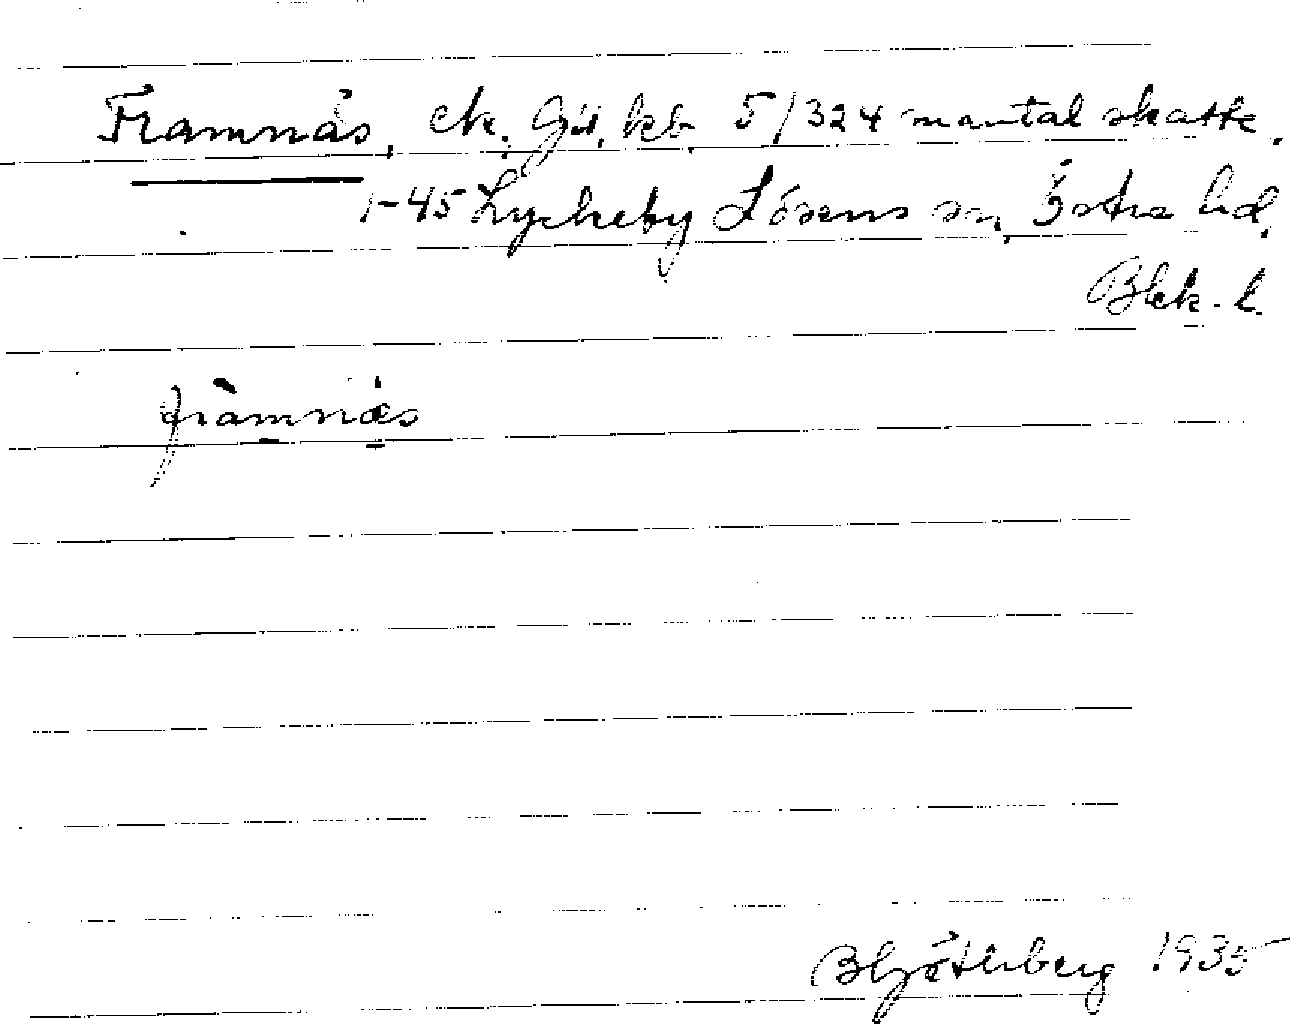 Framnäs, ek. Gd, kb. 5/324 mantal skatte.
1-45 Lyckeby Lösens sn, Östra hd,
Blek. l.
fràmnäs
1935